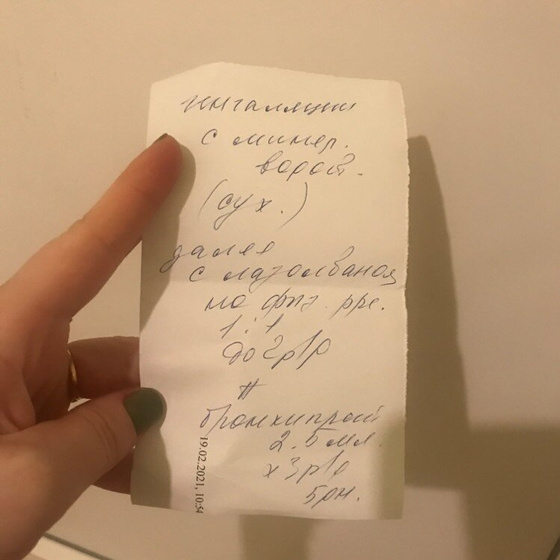 ингаляции
с минер.
водой.
(сух.)
далее
с лазолваном
на физ. рре.
1:1
до 2 р/д
#
Бронхипрет
2.5 мл.
х 3 р/д
5 дн.
19.02.2021, 10:54